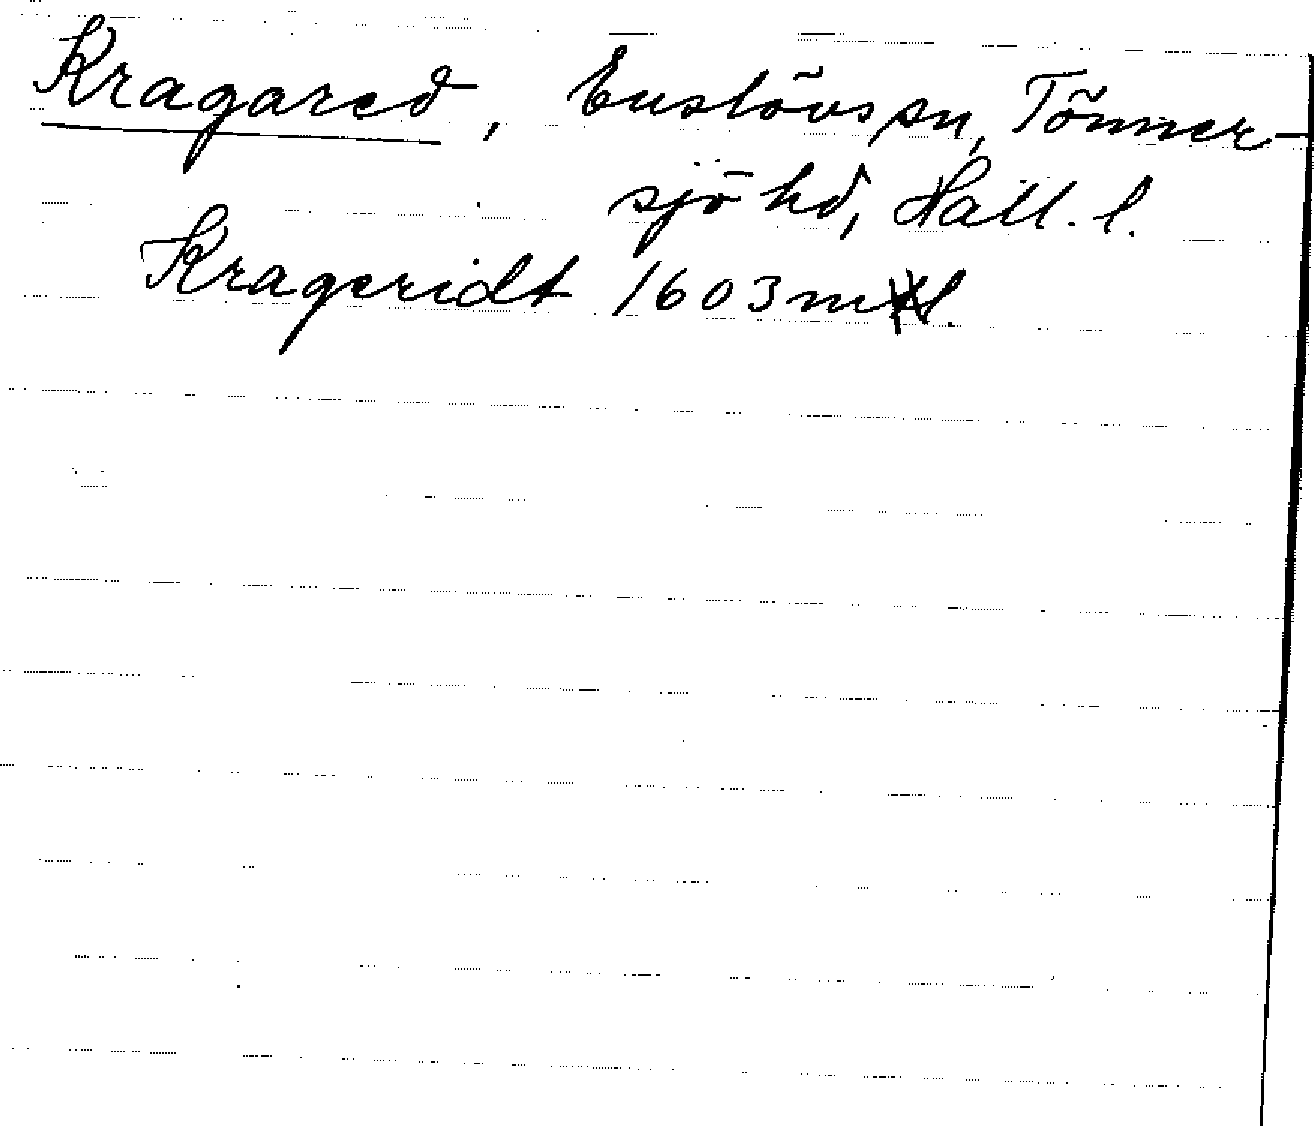 Kragared, Enslövs sn, Tönner-
sjö hd, Hall. l.
Krageridt 1603 mtl.